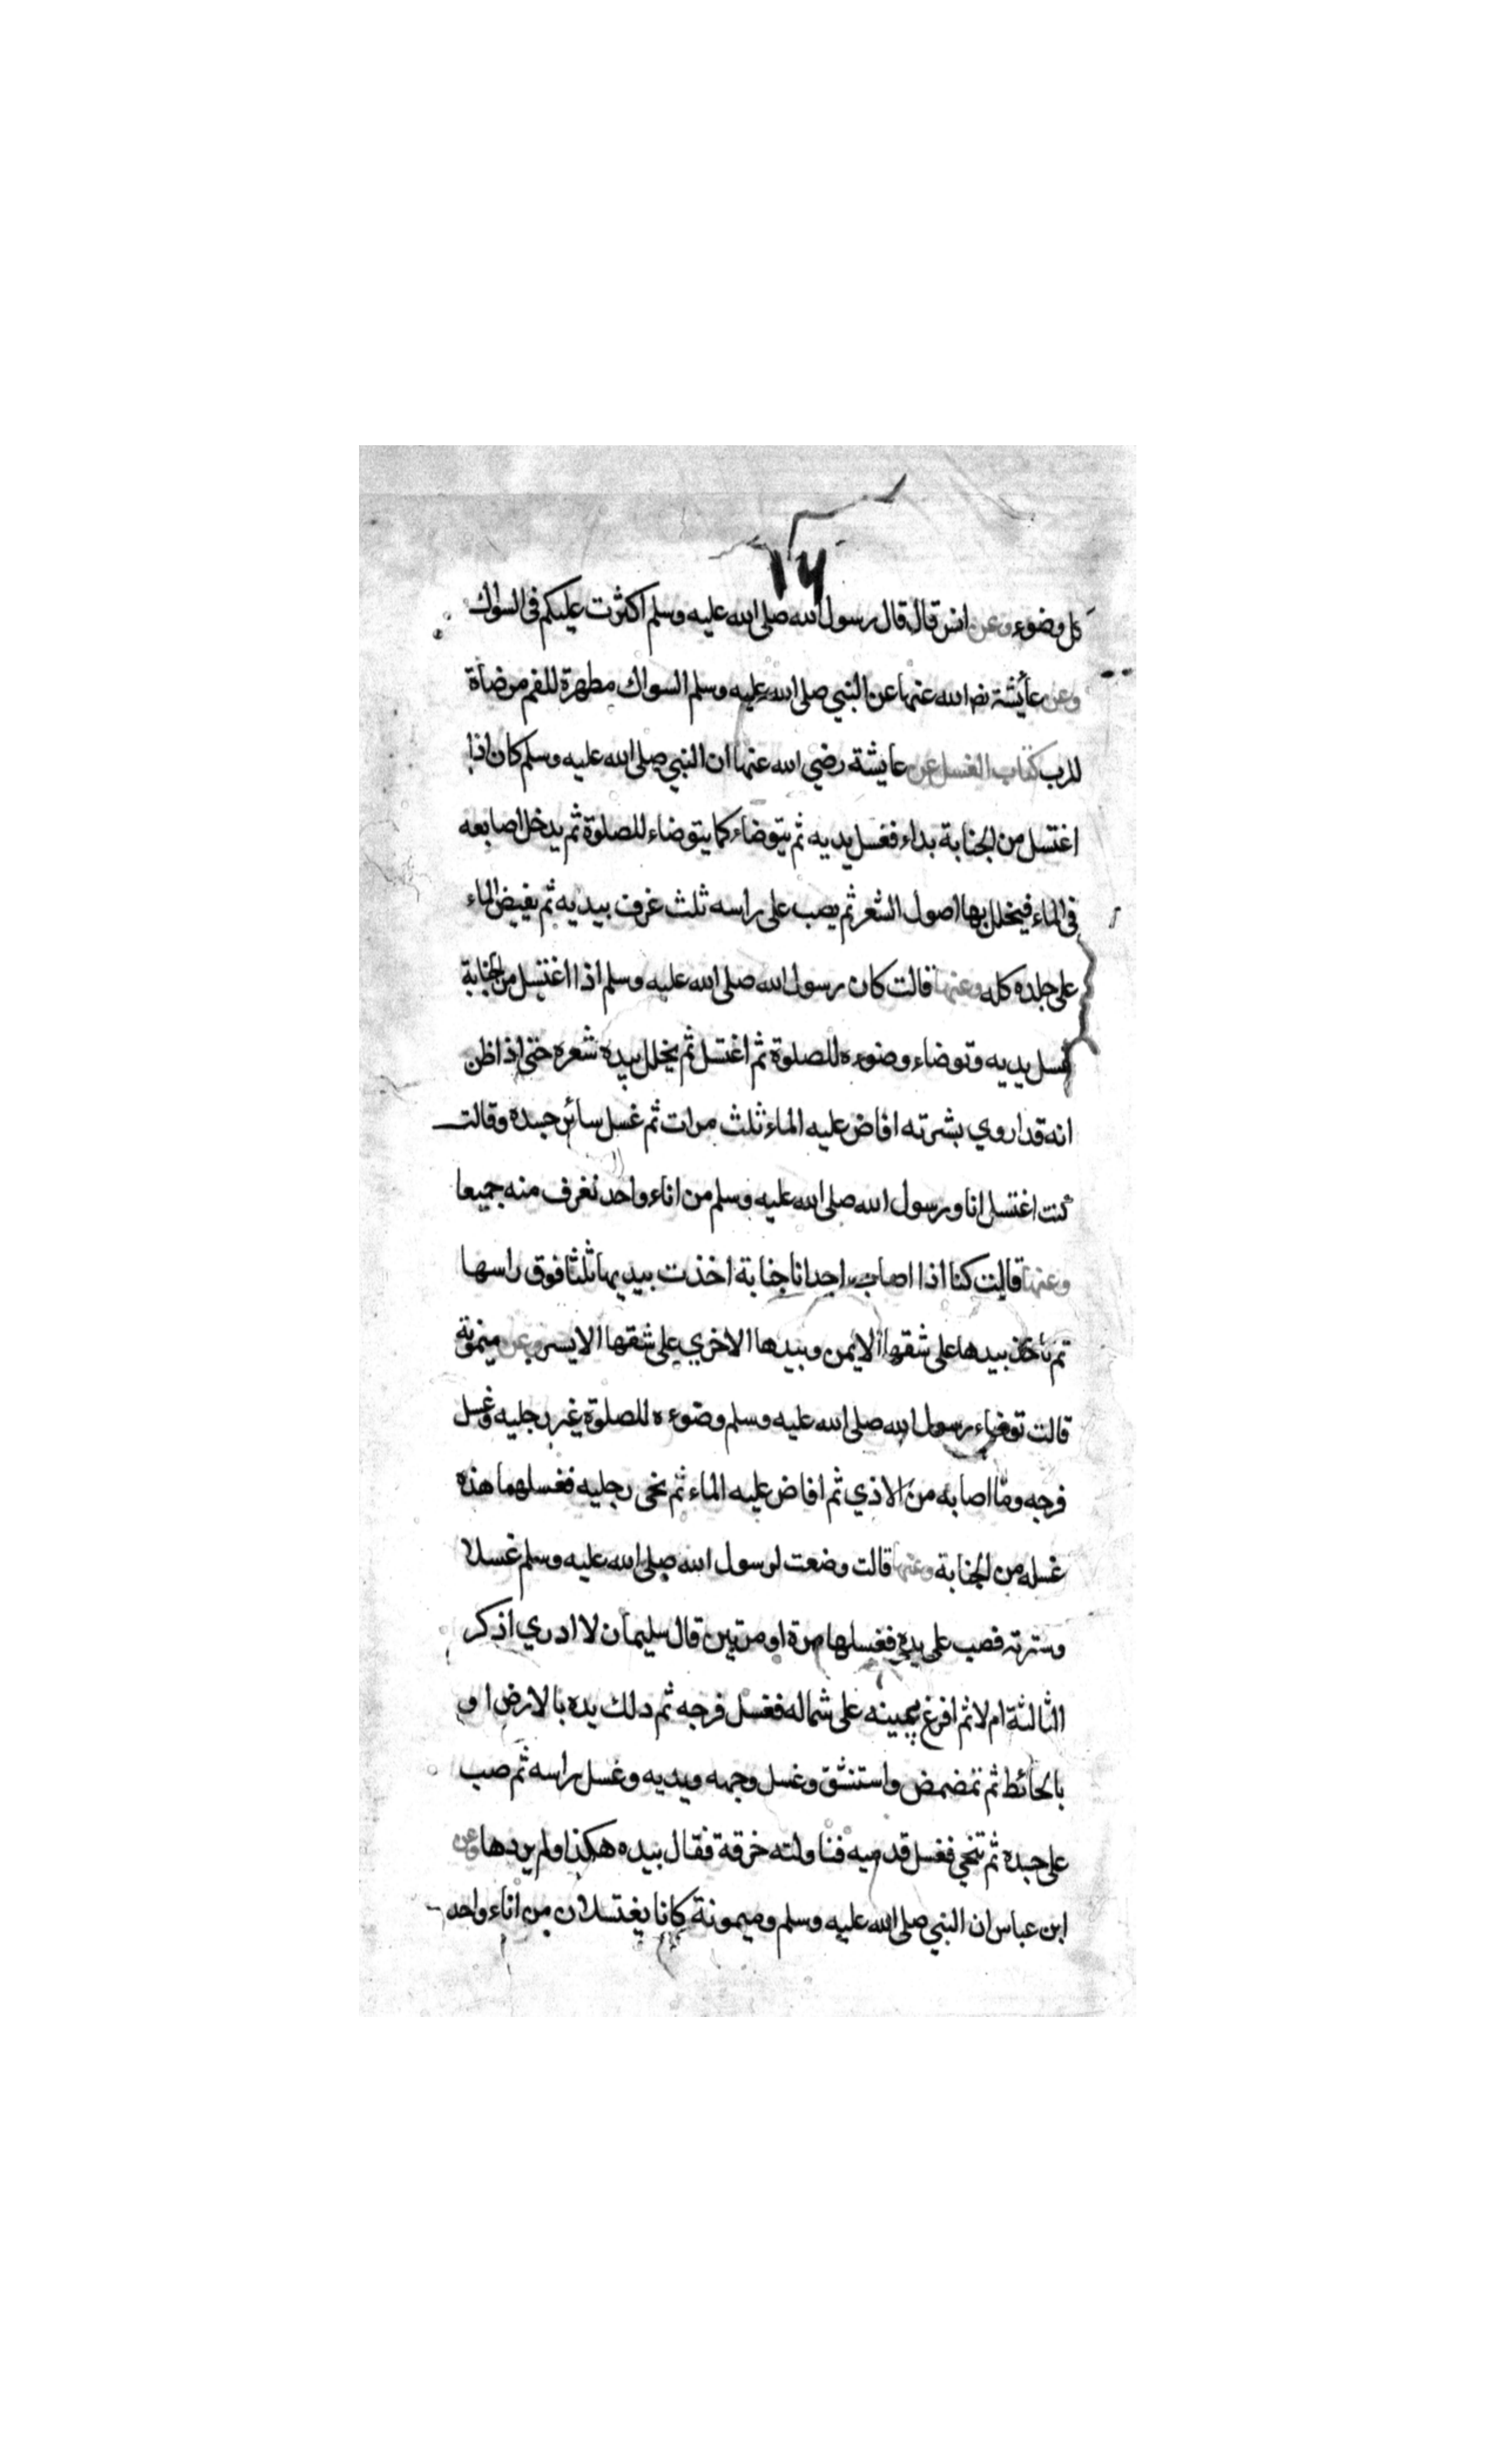 ١٤
كل وضوء وعن انس قال قال رسول الله صلى الله عليه وسلم اكثرت عليكم فى السواك
وعن عائشة رضى الله عنها عن النبي صلى الله عليه وسلم السواك مطهرة للفم مرضاة
للرب كتاب الغسل عن عايشة رضي الله عنها ان النبي صلى الله عليه وسلم كان اذا
اغتسل من الجنابة بداء فغسل يديه ثم يتوضاء كما يتوضاء للصلوة ثم يدخل اصابعه
فى الماء فيخلل بها اصول الشعر ثم يصب على راسه ثلث غرف بيديه ثم يفيض الماء
على جلده كله وعنها قالت كان رسول الله صلى الله عليه وسلم اذا اغتسل من الجنابة
غسل يديه وتوضاء وضوءه للصلوة ثم اغتسل ثم يخلل بيده شعره حتى اذا ظن
انه قد اروي بشرته افاض عليه الماء ثلث مرات ثم غسل سائر جسده وقالت
كنت اغتسل انا ورسول الله صلى الله عليه وسلم من اناء واحد نغرف منه جميعا
وعنها قالت كنا اذا اصاب احدانا جنابة اخذت بيديها ثلثا فوق راسها
ثم تأخذ بيدها على شقها الايمن وبيدها الاخري على شقها الايسر وعن ميمونة
قالت توضاء رسول الله صلى الله عليه وسلم وضوءه للصلوة غير رجليه وغسل
فرجه وما اصابه من الاذي ثم افاض عليه الماء ثم نحى رجليه فغسلهما هذه
غسله من الجنابة وعنها قالت وضعت لرسول الله صلى الله عليه وسلم غسلا
وسترته فصب على يده فغسلها مرة او مرتين قال سليمان لا ادري اذكر
الثالثة ام لا ثم افرغ بيمينه على شماله فغسل فرجه ثم دلك يده بالارض او
بالحائط ثم تمضمض واستنشق وغسل وجهه ويديه وغسل راسه ثم صب
على جسده ثم تنحي فغسل قدميه فناولته خرقة فقال بيده هكذا ولم يردها وعن
ابن عباس ان النبي صلى الله عليه وسلم وميمونة كانا يغتسلان من اناء واحد